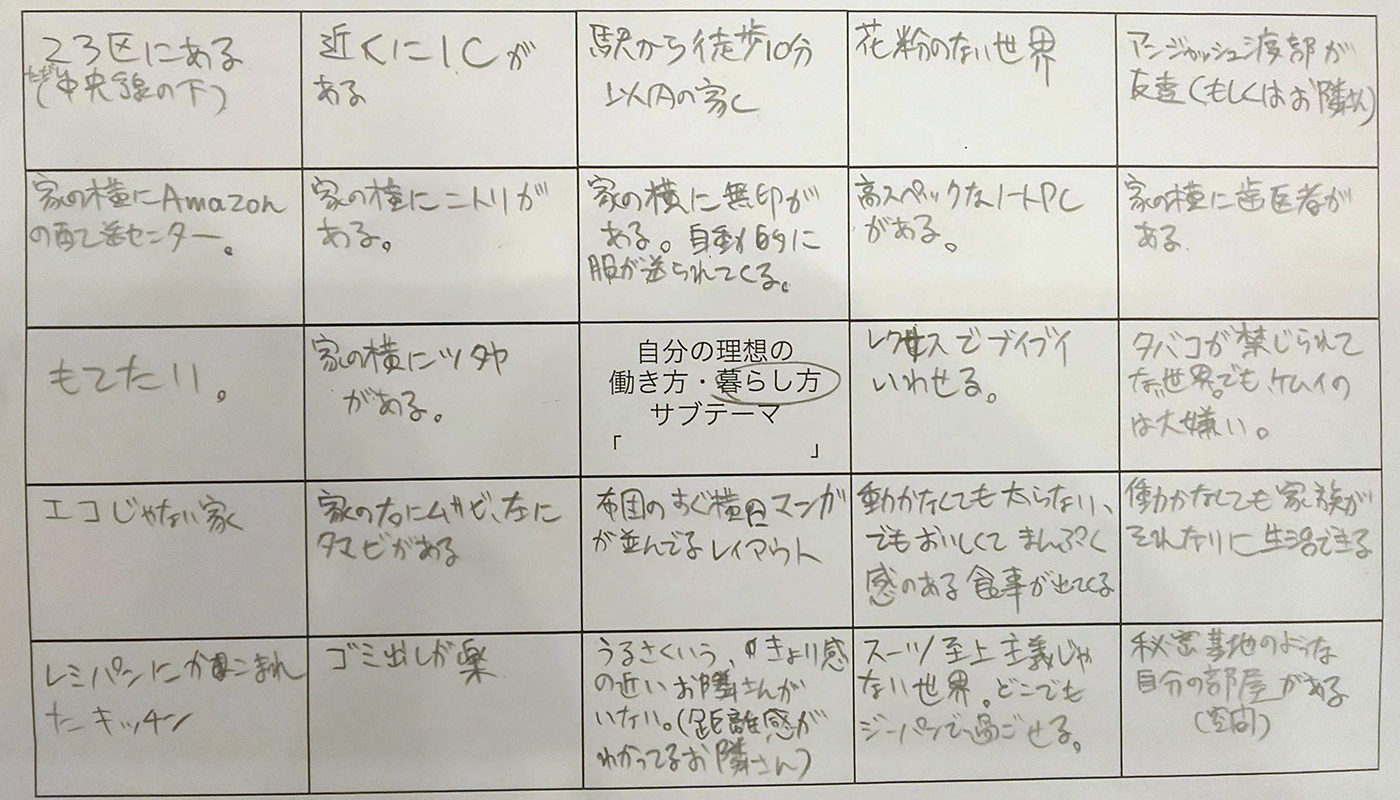 23区にある
(ただ中央線の下)
近くにICが
ある
駅から徒歩10分
以内の家
花粉のない世界
アンジャッシュ渡部が
友達(もしくはお隣さん)
家の横にAmazon
の配送センター。
家の横にニトリが
ある。
家の横に無印が
ある。自動的に
服が送られてくる。
高スペックなノートPC
がある。
家の横に歯医者が
ある.
もてたい。
家の横にツタヤ
がある。
自分の理想の
働き方・暮らし方
サブテーマ
「 」
レクサスでブイブイ
いわせる。
タバコが禁じられて
ない世界。でも、ケムイの
は大嫌い。
エコじゃない家
家の右にムサビ、左に
タマビがある
布団のすぐ横にマンガ
が並んでるレイアウト
動かなくても太らない、
でもおいしくてまんぷく
感のある食事が出てくる
働かなくても家族が
それなりに生活できる
レミパンにかこまれ
たキッチン
ゴミ出しが楽
うるさくいう、きょり感
の近いお隣さんが
いない。(距離感が
わかってるお隣さん)
スーツ至上主義じゃ
ない世界。どこでも
ジーパンで過ごせる。
秘密基地のような
自分の部屋がある
(空間)